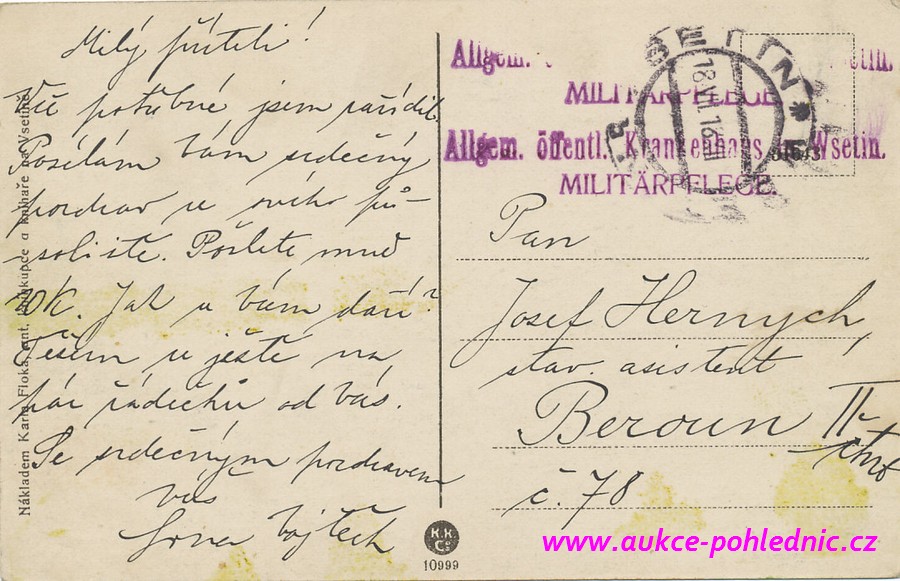 Milý příteli!
Vše potřebné jsem zařídil.
Posílám Vám srdečný
pozdrav ze svého pů-
sobiště. Pošlete mně
20K. Jak se vám daří?
Těším se ještě na
pár řádečků od vás.
Se srdečným pozdravem
váš
Vojtěch
Nákladem Karla Floka, knihkupce a knihaře na Vsetíně
K.K.
Co
10999
Allgem. Wsetin.
MILITÄRPFLEGE
Allgem. öffentl. Krankenhaus in Wsetin.
MILITÄRPFLEGE
18 VII 16
Pan
Josef Hernych,
stav. asistent
Beroun II-
č. 78
www.aukce-pohlednic.cz